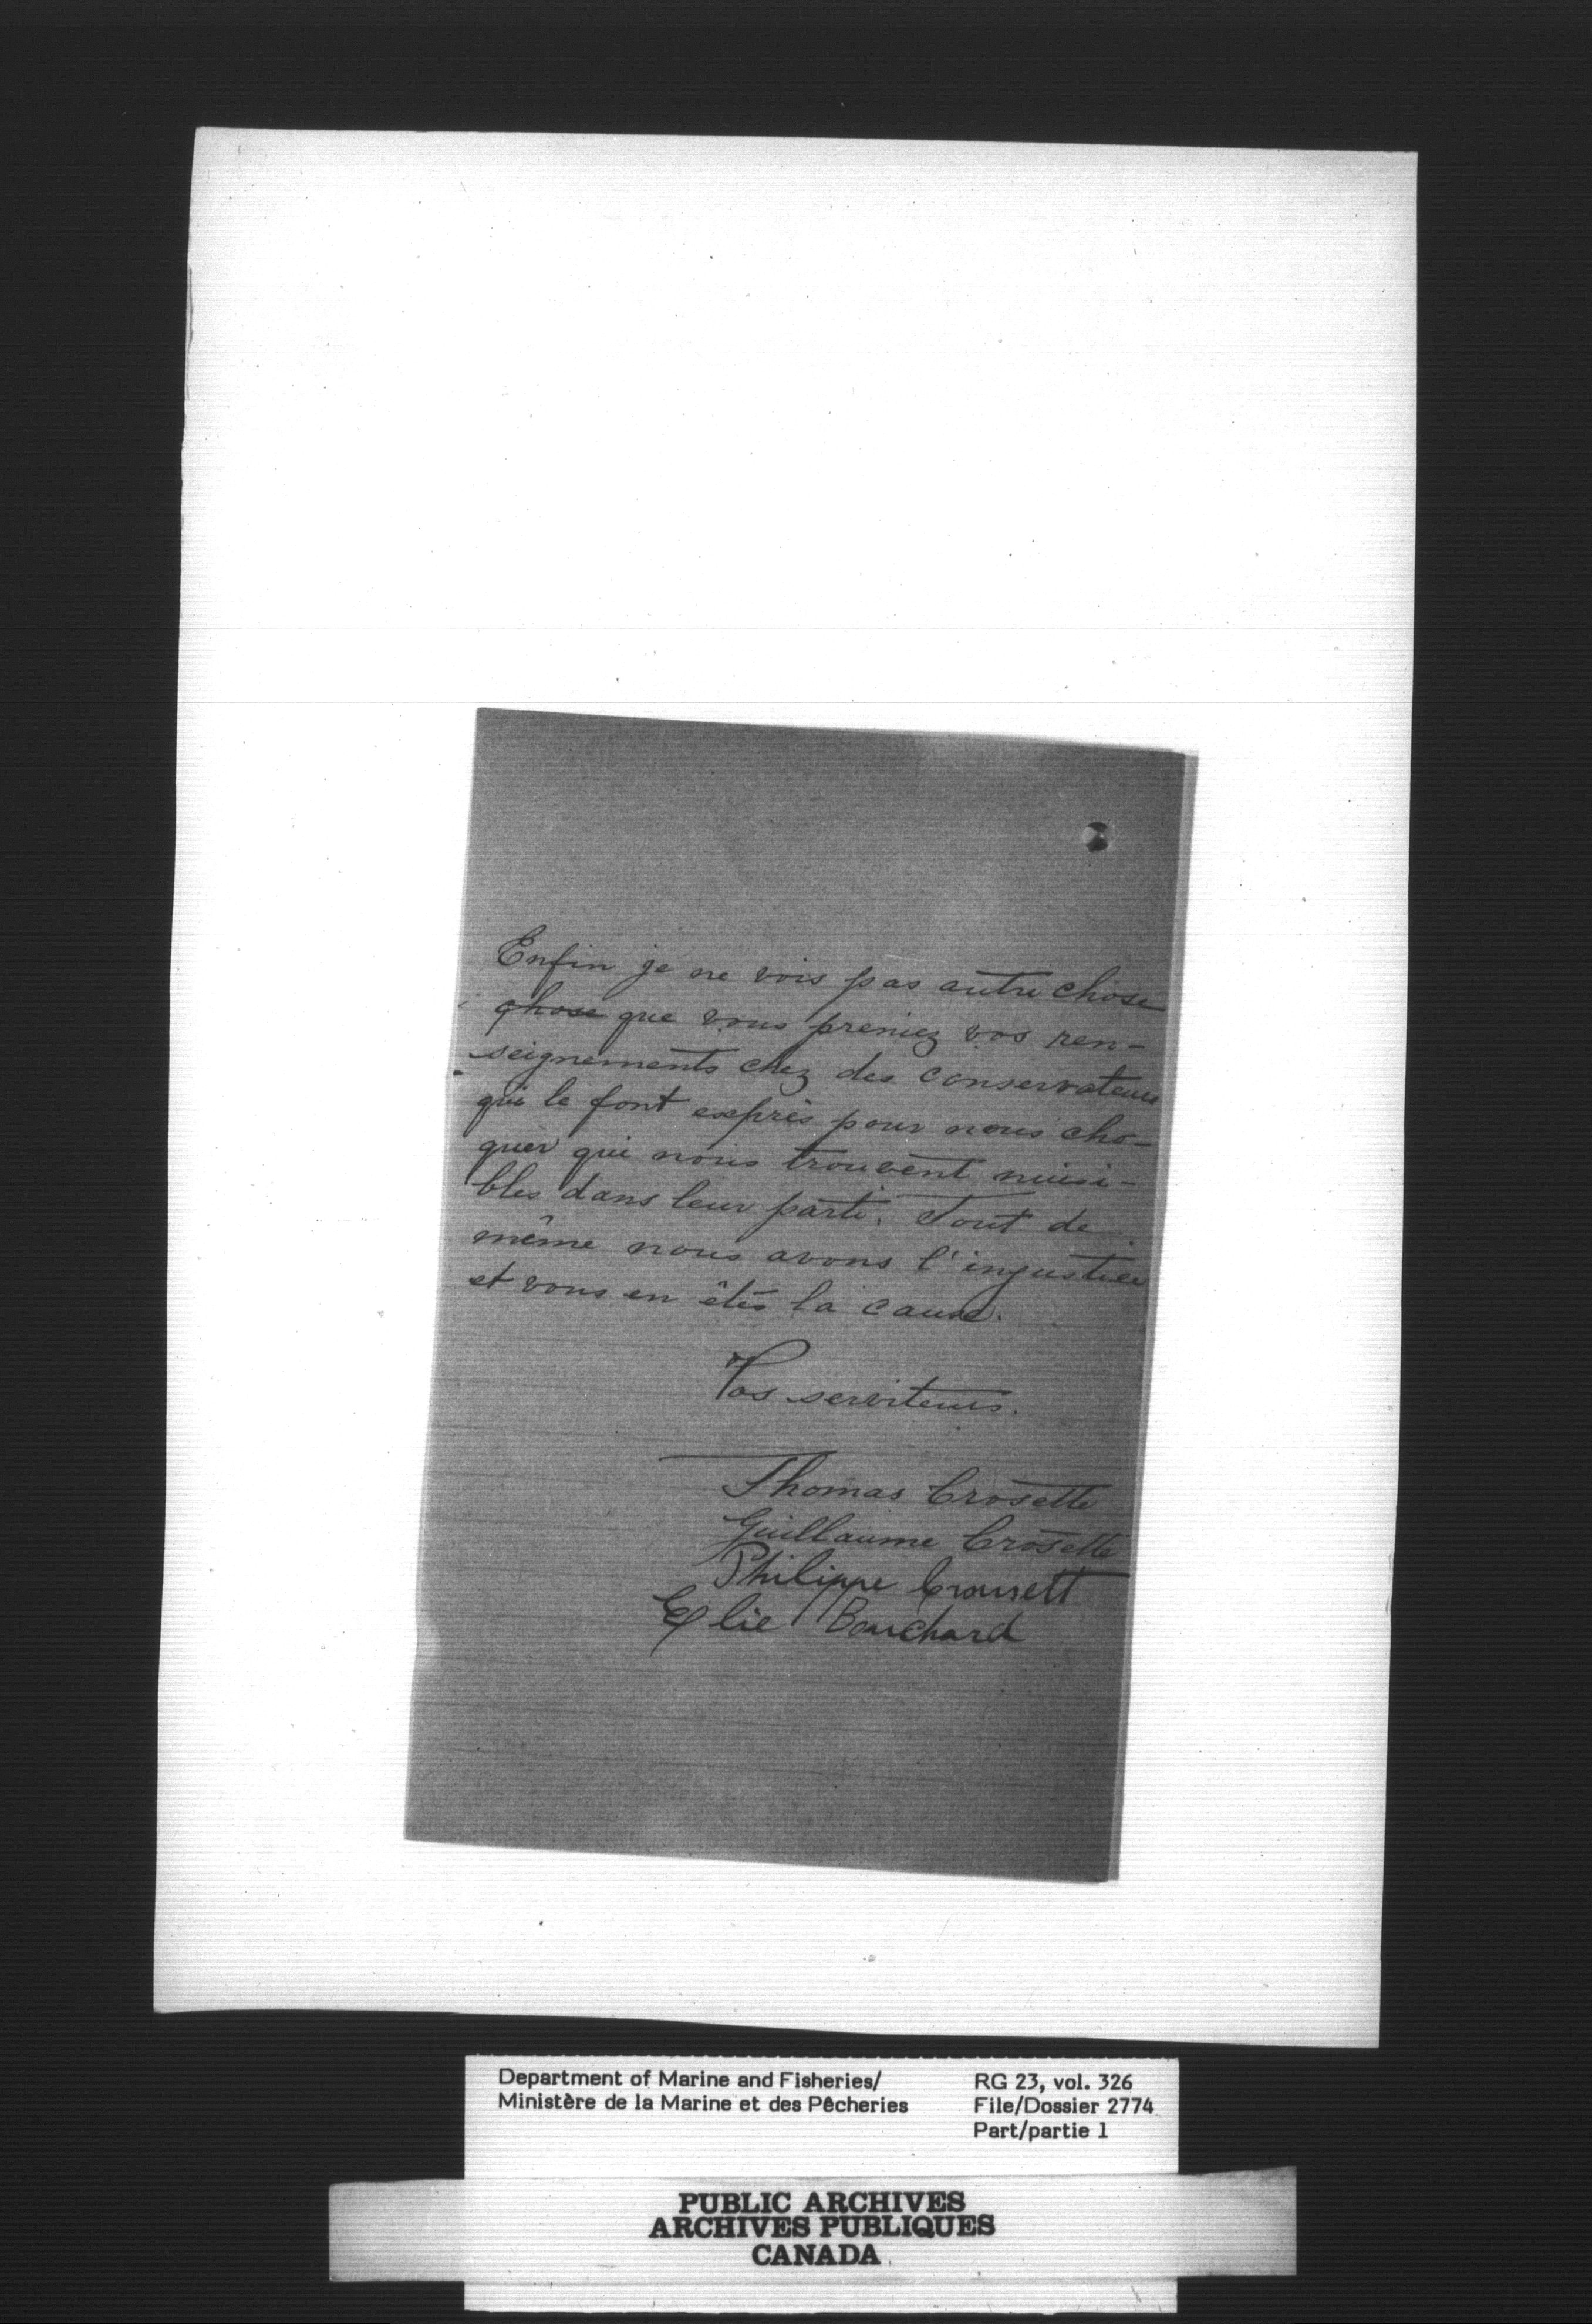 Enfin je ne vois pas autre chose
chose que vous preniez vos ren-
seignements chez des conservateurs
qui le font exprès pour nous cho-
quer qui nous trouvent nuisi-
bles dans leur parti. Tout de
même nous avons l'injustice
et vous en êtes la cause.
Vos serviteurs.
Thomas Crosette
Guillaume Crosette
Philippe Crousett
Elie Bouchard
Department of Marine and Fisheries/
Ministère de la Marine et des Pêcheries
RG 23, vol. 326
File/Dossier 2774
Part/partie 1
PUBLIC ARCHIVES
ARCHIVES PUBLIQUES
CANADA